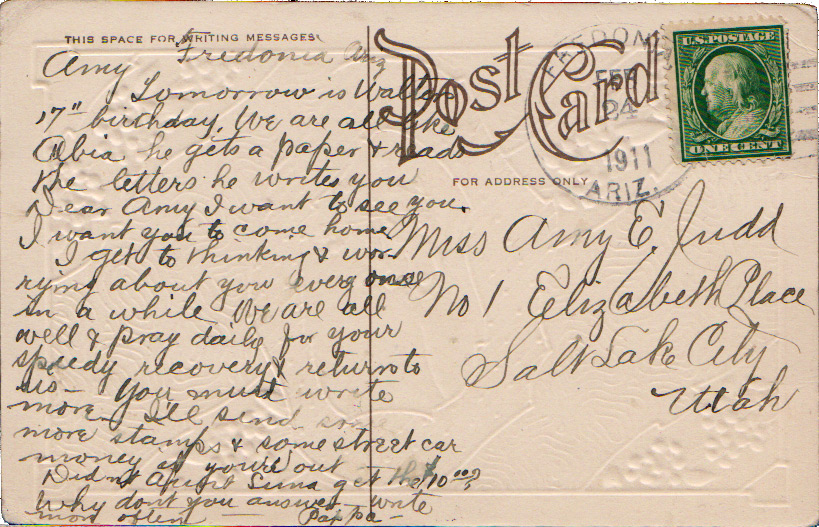 THIS SPACE FOR WRITING MESSAGES
Fredonia Ariz
Amy
Tomorrow is Walter
17" birthday. We are all
he gets a paper & reads
the letters he writes you
Dear Amy I want to see you.
I want you to come home
I get to thinking & wor-
rying about you every once
in a while We are all
well & pray daily for your
speedy recovery & return to
us - You must write
more I'll send some
more stamps & some street car
money if you're out
Didn't Aunt get the $10.00?
Why don't you answer - write
more often Pappa -
Post Card
FOR ADDRESS ONLY
FREDONIA
FEB
24
1911
ARIZ.
U.S. POSTAGE
ONE CENT
Miss Amy E. Judd
No 1 Elizabeth Place
Salt Lake City
Utah